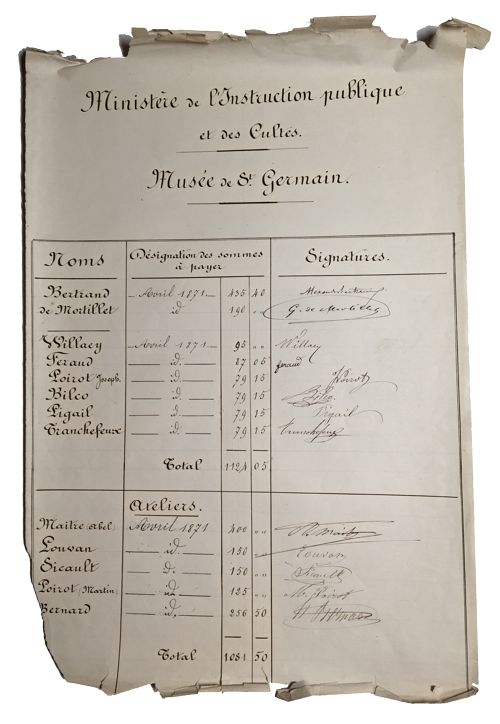 Ministère de l'Instruction publique
et des Cultes.
Musée de St Germain.
Noms Désignation des sommes à payer Signatures.
Bertrand Avril 1871 435 40
de Mortillet id 190 „ G. de Mortillet
Willaey Avril 1871 95 „ Willaey
Feraud id. 87 05 feraud
Poirot Joseph. id. 79 15 Poirot
Bilco id. 79 15 Bilco
Pigail id. 79 15 Pigail
Tranchefeuxe id. 79 15
Total 1124 05
Ateliers.
Maitre (abel) Avril 1871 400 „ A. Maitre
Louvan id. 150 „ Louvan
Sicault d. 150 „ Sicault
Poirot (Martin) id. 125 „ M. Poirot
Bernard id. 256 50
Total 1081 50